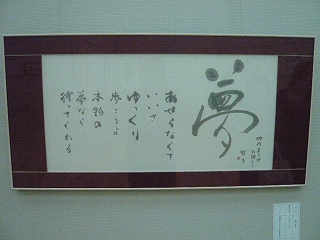 夢
あせらなくて
いいさ
ゆっくり
歩こうよ
本物の
夢なら
待ってくれる